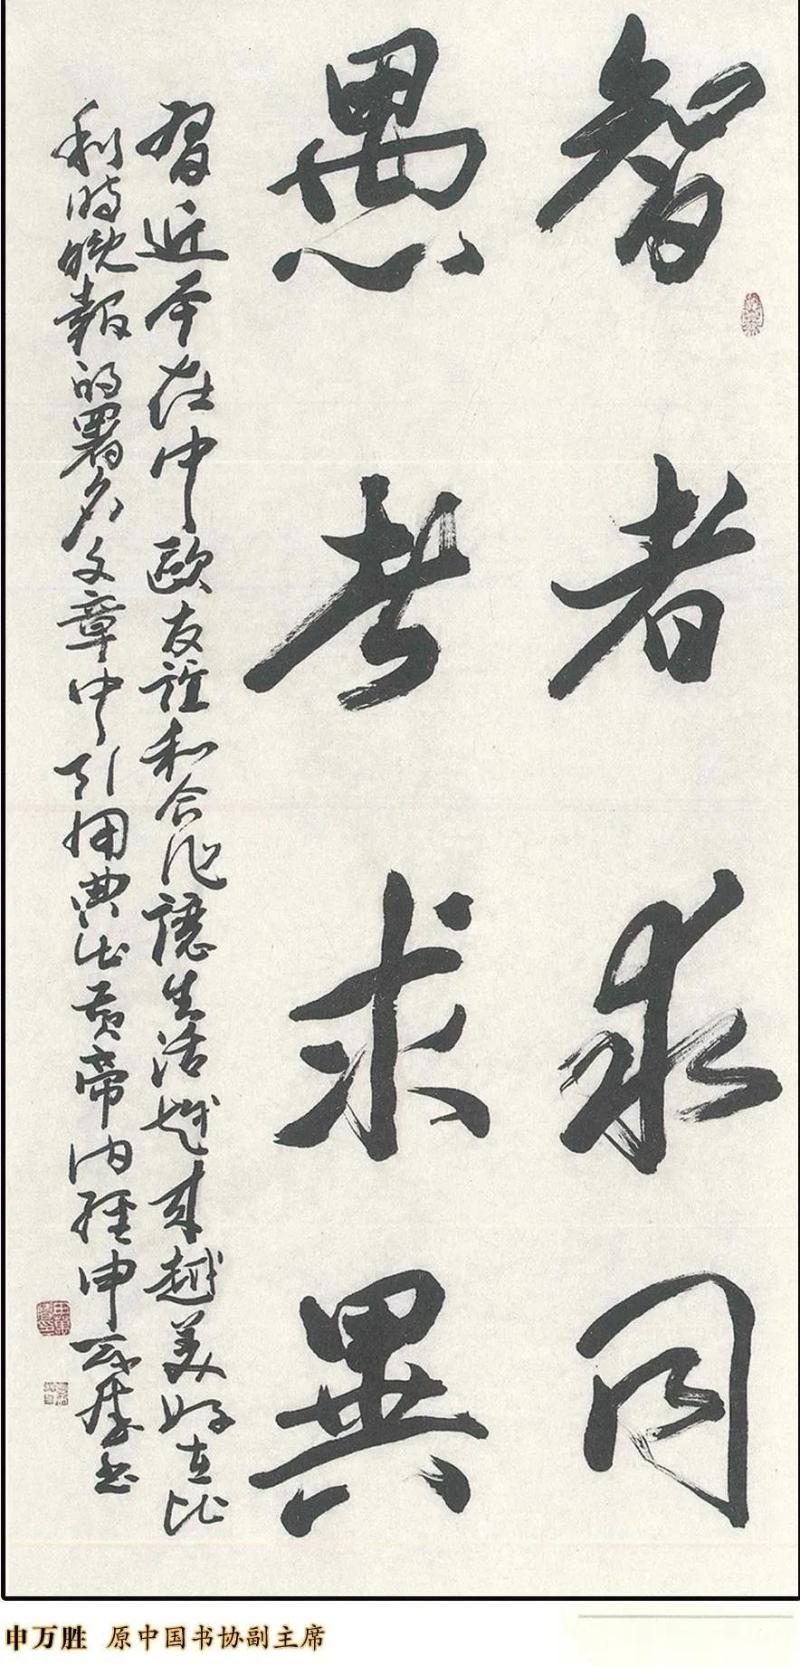 智者求同
愚者求異
習近平在中歐友誼和合作讓生活越來越美好在比
利時晚報的署名文章中引用典出黃帝内經申万勝书
申万胜 原中国书协副主席